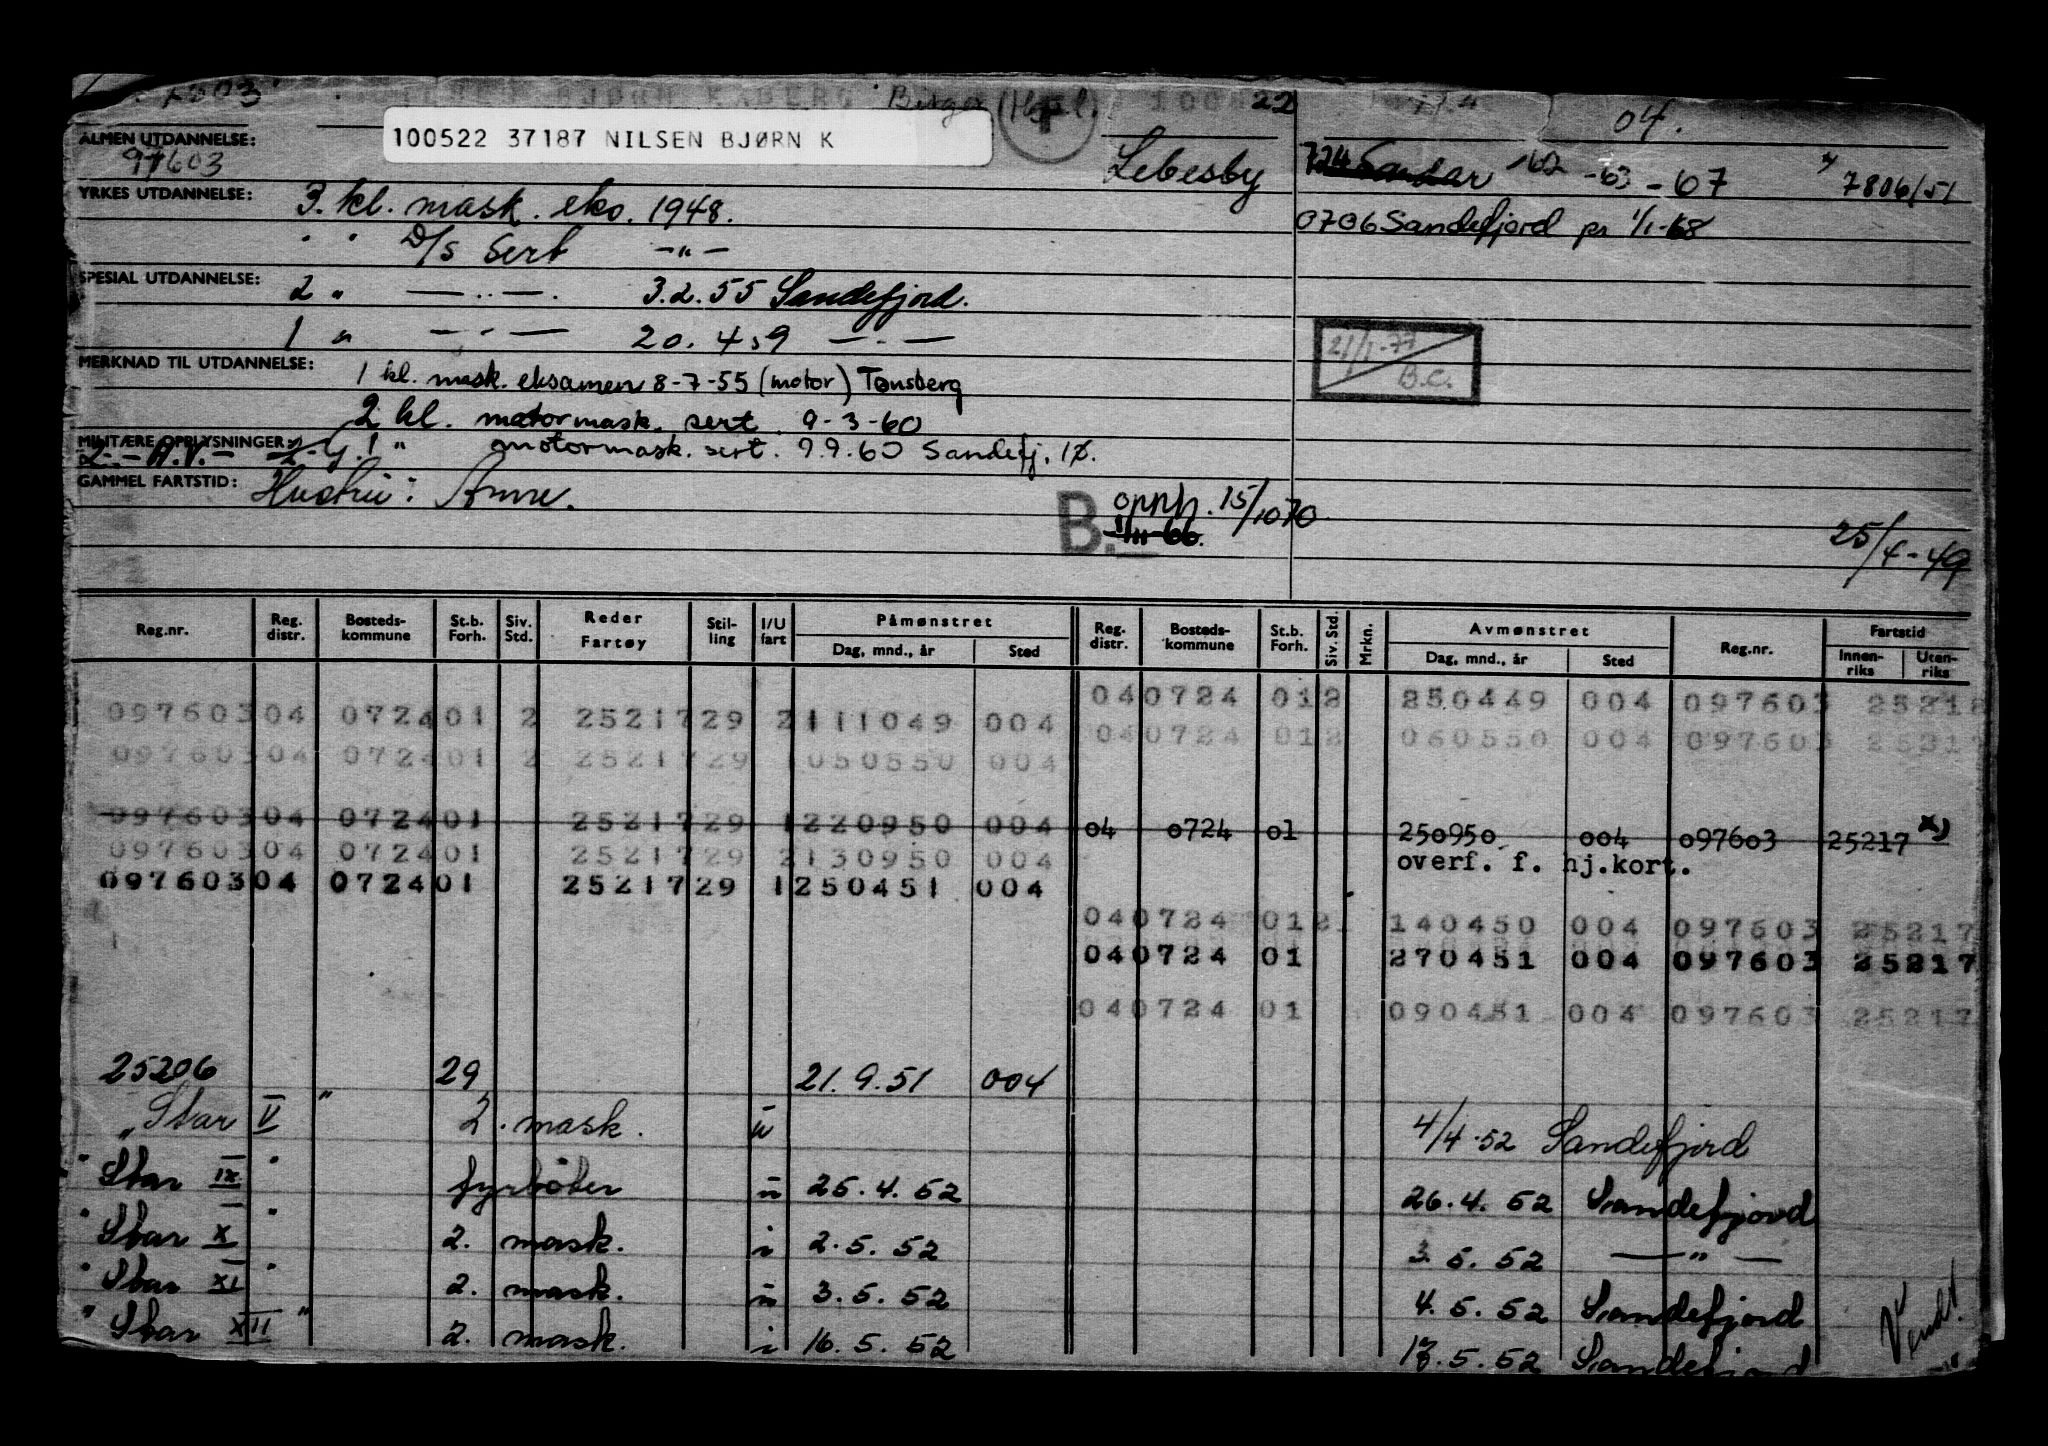 BJØRN 22 04.
100522 37187 NILSEN BJØRN K
ALMEN UTDANNELSE: 97603 Lebesby 724 Sandar -62 -63 -67 7806/51
YRKES UTDANNELSE: 3. kl. mask. eks. 1948. 0706 Sandefjord pr 1/1-68
" " D/S Sert -"-
SPESIAL UTDANNELSE: 2 " —..—. 3.2.55 Sandefjord.
1 " —.— 20.4.59 —.—
21/1-77 B.C.
MERKNAD TIL UTDANNELSE: 1 kl. mask. eksamen 8-7-55 (motor) Tønsberg
2 kl. motormask. sert. 9-3-60
MILITÆRE OPPLYSNINGER: 1 " motormask. sert. 9.9.60 Sandefj.
GAMMEL FARTSTID: Hustru: Anne.
B. opph. 15/10 70
1/11-66.
25/4-49
Reg.nr. Reg. distr. Bosteds-kommune St.b. Forh. Siv. Std. Reder Fartøy Stil-ling I/U fart Påmønstret Dag, mnd., år Sted Reg. distr. Bosteds-kommune St.b. Forh. Siv. Std. Mrkn. Avmønstret Dag, mnd., år Sted Reg.nr. Fartstid Innen-riks Uten-riks
040724 012 250449 004 097603 25218
09760304 072401 2 2521729 2111049 004
040724 012 060550 004 097603 25217
09760304 072401 2 2521729 1050550 004
09760304 072401 2521729 1220950 004 04 0724 01 250950 004 097603 25217 x)
09760304 072401 2521729 2130950 004 overf. f. hj.kort.
09760304 072401 2521729 1250451 004
040724 012 140450 004 097603 25217
040724 01 270451 004 097603 25217
040724 01 090451 004 097603 25217
25206 29 21.9.51 004
"Star V" 2. mask. u 4/4.52 Sandefjord
"Star IX" fyrbøter u 25.4.52 26.4.52 Sandefjord
"Star X" 2. mask. i 2.5.52 3.5.52 —"—
"Star XI" 2. mask. u 3.5.52 4.5.52 Sandefjord
"Star XII" 2. mask. i 16.5.52 17.5.52 Sandefjord
Vend!